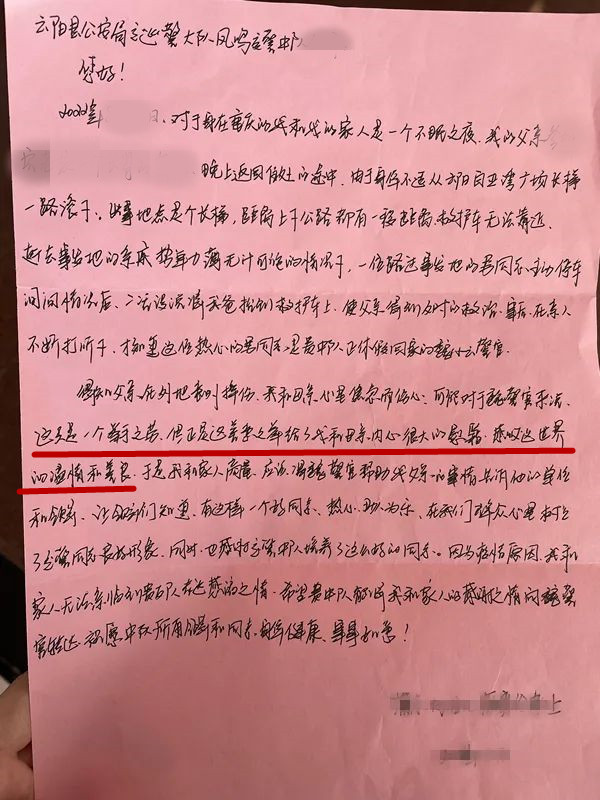 云阳县公安局交巡警大队凤鸣交警中队
您好！
2022年 日，对于身在重庆的我和我的家人是一个不眠之夜，我的父亲
晚上返回住处的途中，由于身体不适从 阳自亚湾广场长梯
一路滚下，此事地点是个长梯，距离上下公路都有一段距离，救护车无法靠近，
赶去事发地的亲戚势单力薄无计可施的情况下，一位路过事发地的男同志主动停车
询问情况后，二话没说将我爸抬到救护车上，使父亲得到及时的救治，事后，在亲人
不断打听下，才知道这位热心的男同志是贵中队正休假回家的 警官。
父亲在外地看到摔伤，我和母亲心里焦急而伤心；可能对于 警官来说，
这只是一个举手之劳，但正是这举手之劳给了我和母亲内心很大的慰藉，感叹这世界
的温情和善良，于是我和家人商量，应该将 警官帮助我父亲的事情告诉他的单位
和领导，让领导们知道，有这样一个好同志，热心、助人为乐，在我们群众心里树立
了公安同志良好形象。同时也感谢交警中队培养了这么好的同志。因为疫情原因，我和
家人无法亲临到贵中队表达感激之情，希望贵中队能将我和家人的感谢之情向 警
官转达，祝愿中队所有领导和同志身体健康、事事如意！